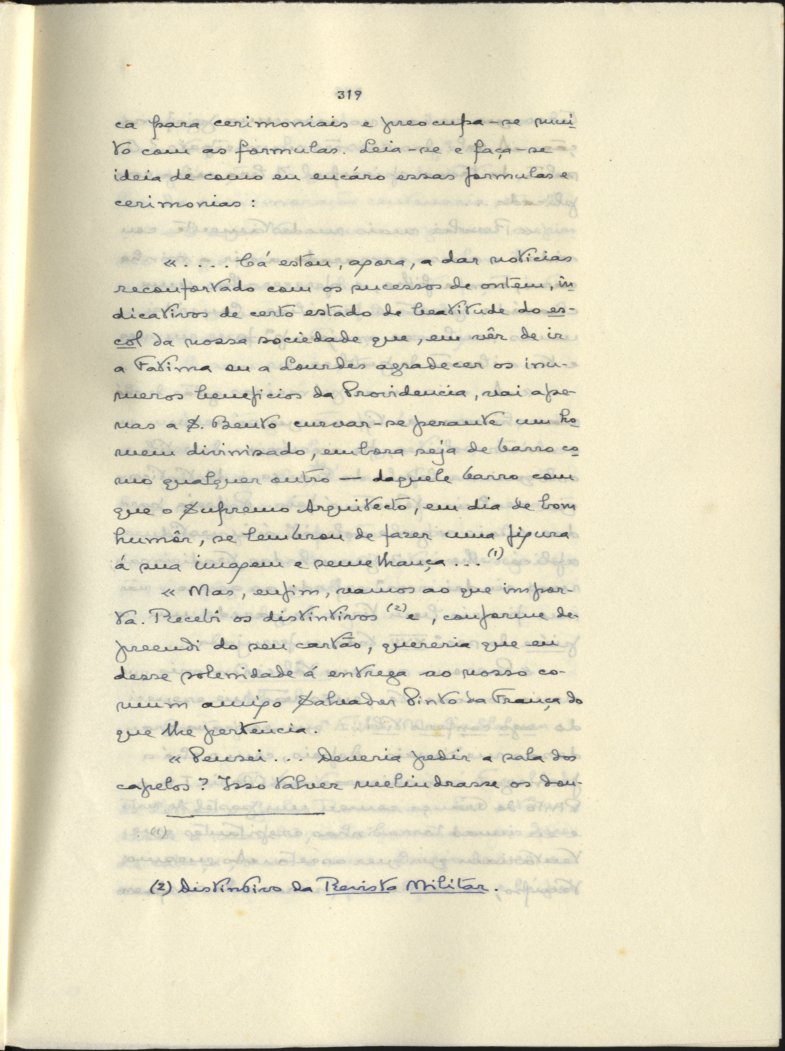 319
ca para cerimoniais e preocupa-se mui
to com as formulas. Leia-se e faça-se
ideia de como eu encáro essas formulas e
cerimonias:
«.... Cá estou, agora, a dar noticias
reconfortado com os sucessos de ontem, in
dicativos de certo estado de beatitude do es-
col da nossa sociedade que, em vêr de ir
a Fatima ou a Lourdes agradecer os inu-
meros beneficios da Providencia, vai ape-
nas a S. Bento curvar-se perante um ho
mem divinisado, embora seja de barro co
mo qualquer outro — daquele barro com
que o Supremo Arquitecto, em dia de bom
humôr, se lembrou de fazer uma figura
á sua imagem e semelhança... (1)
« Mas, enfim, vamos ao que impor-
ta. Recebi os distintivos (2) e, conforme de-
preendi do seu cartão, quereria que eu
desse solenidade á entrega ao nosso co-
mum amigo Salvador Pinto da França do
que lhe pertencia.
« Pensei... Deveria pedir a sala dos
capelos? Isso talver melindrasse os dou-
(1)
(2) Distintivo da Revista Militar.